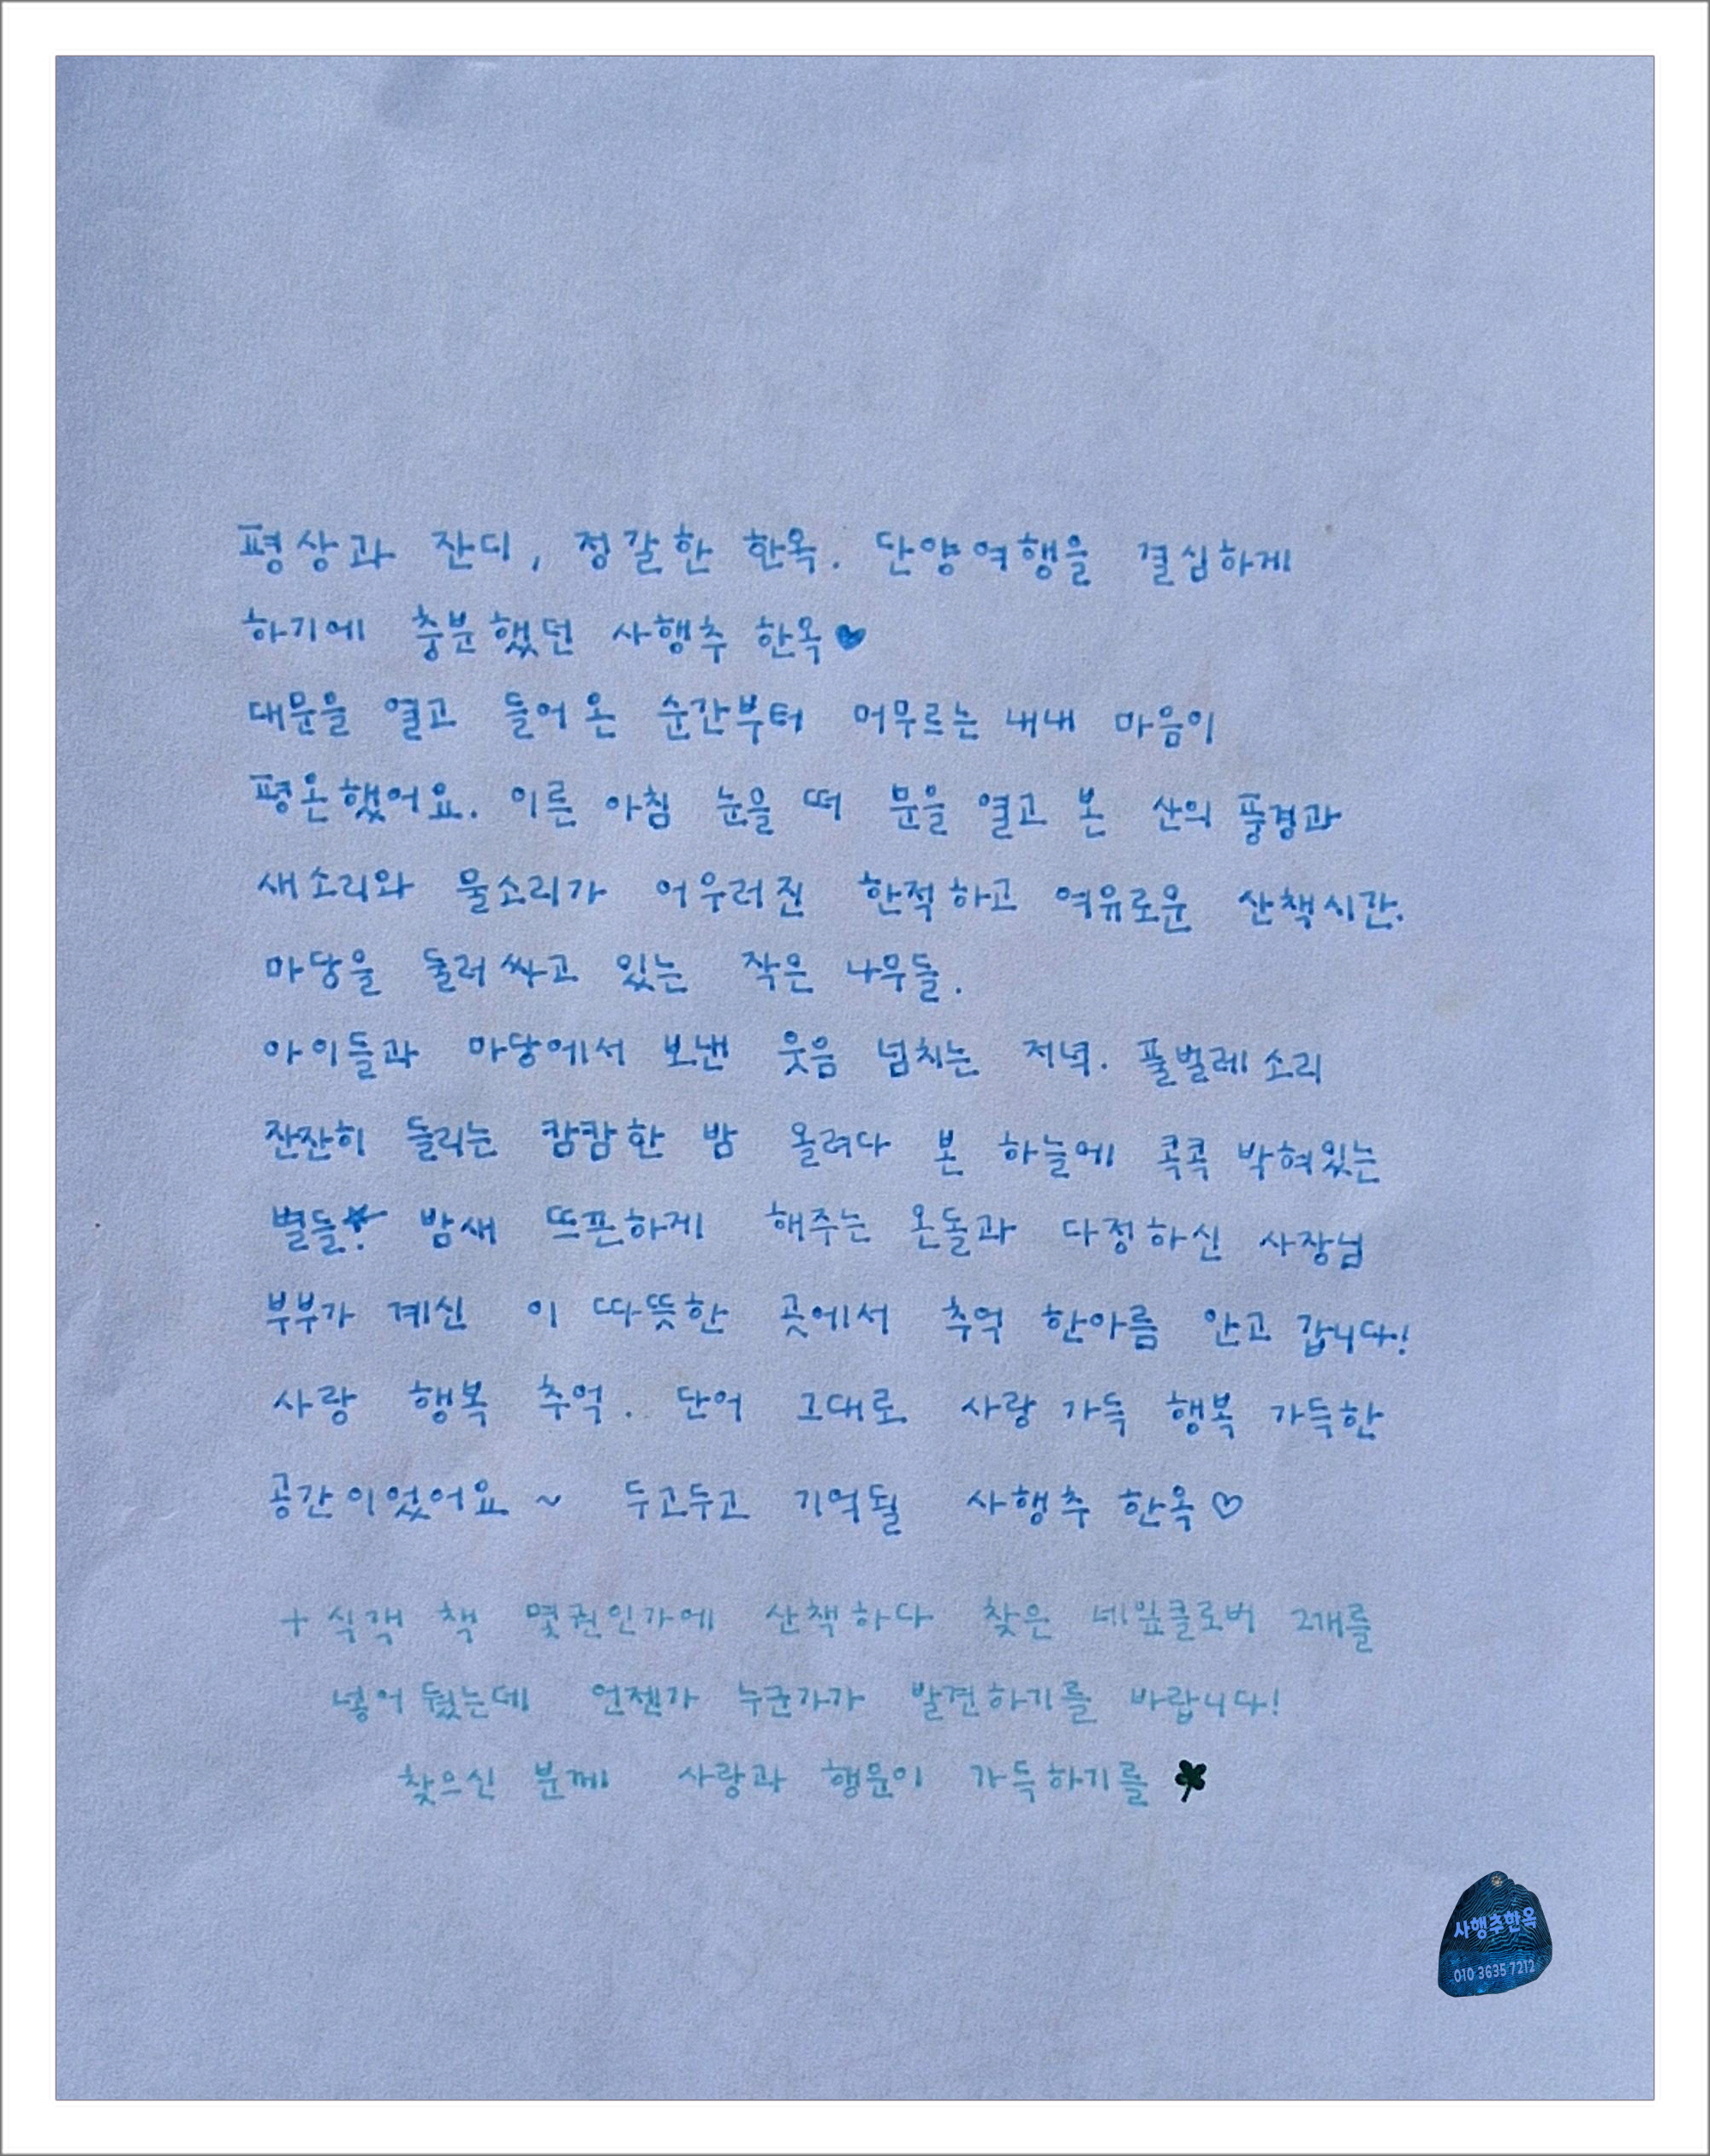 평상과 잔디, 정갈한 한옥. 단양여행을 결심하게
하기에 충분했던 사행추 한옥♥
대문을 열고 들어온 순간부터 머무르는 내내 마음이
평온했어요. 이른 아침 눈을 떠 문을 열고 본 산의 풍경과
새소리와 물소리가 어우러진 한적하고 여유로운 산책시간.
마당을 둘러싸고 있는 작은 나무들.
아이들과 마당에서 보낸 웃음 넘치는 저녁. 풀벌레 소리
잔잔히 들리는 캄캄한 밤 올려다 본 하늘에 콕콕 박혀있는
별들! 밤새 뜨끈하게 해주는 온돌과 다정하신 사장님
부부가 계신 이 따뜻한 곳에서 추억 한아름 안고 갑니다!
사랑 행복 추억. 단어 그대로 사랑 가득 행복 가득한
공간이었어요~ 두고두고 기억될 사행추 한옥♡
+ 식객 책 몇권인가에 산책하다 찾은 네잎클로버 2개를
넣어 뒀는데 언젠가 누군가가 발견하기를 바랍니다!
찾으신 분께 사랑과 행운이 가득하기를
사행추한옥
010 3635 7212